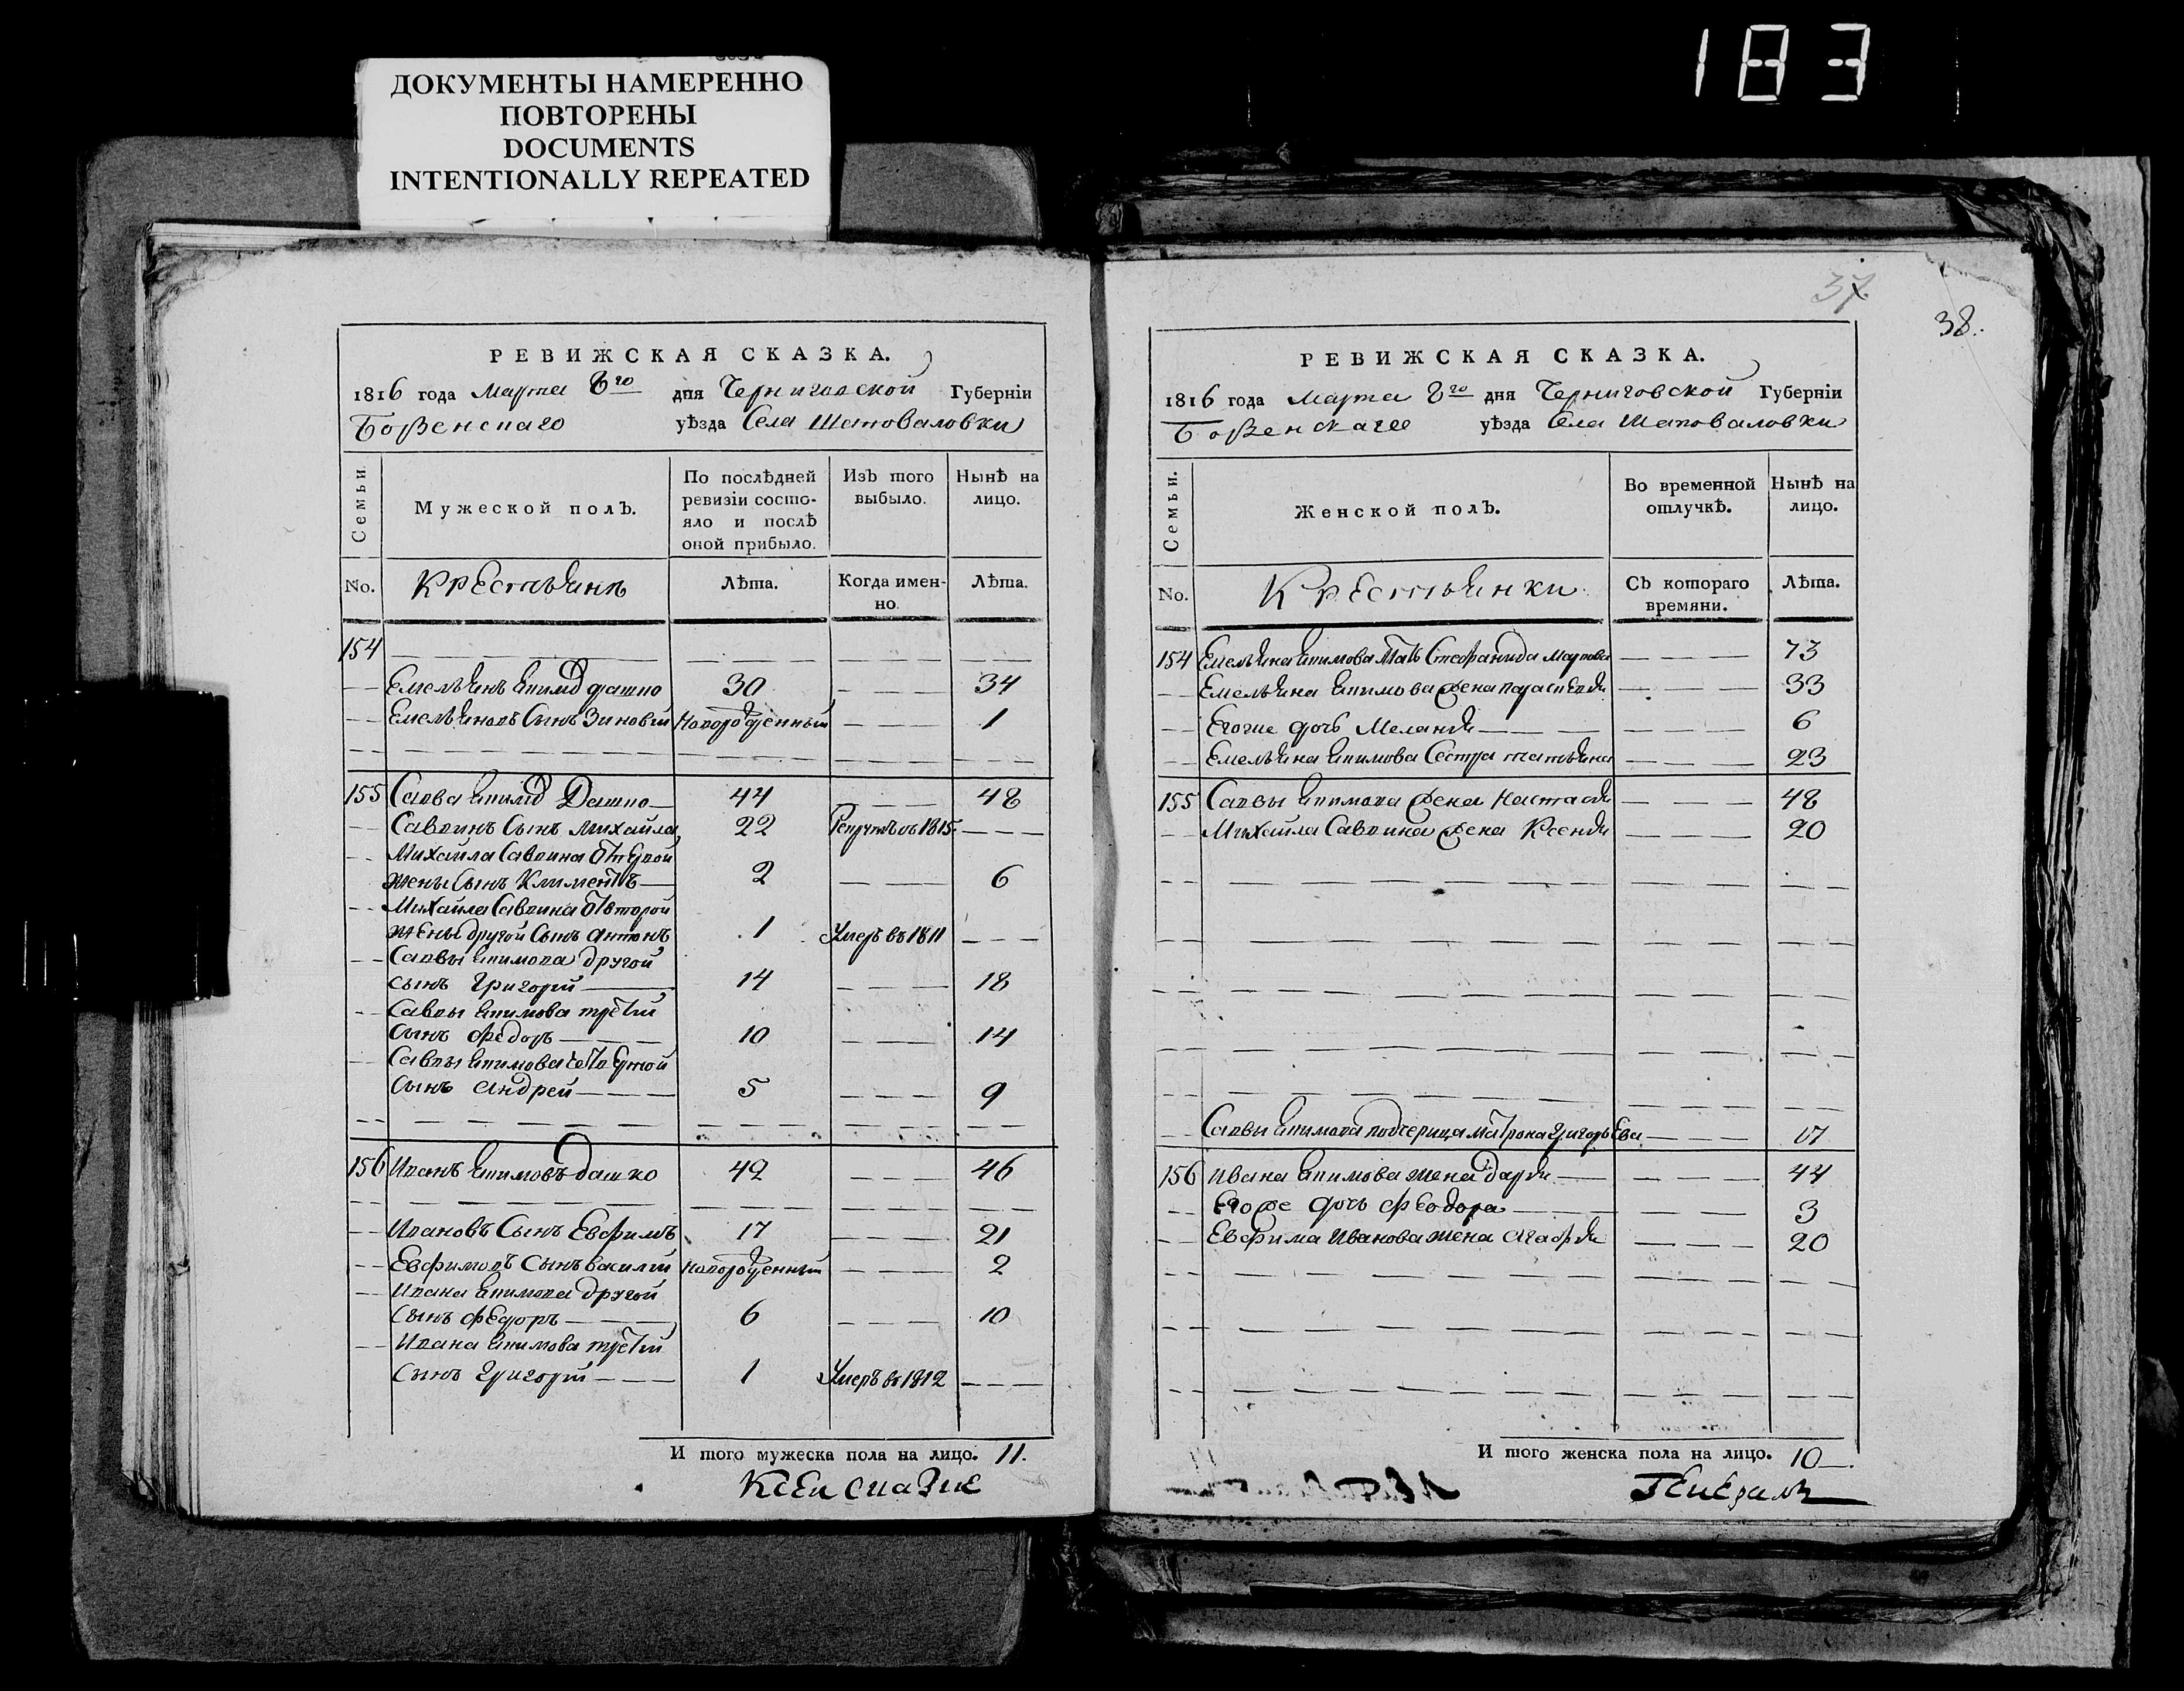 183
ДОКУМЕНТЫ НАМЕРЕННО
ПОВТОРЕНЫ
DOCUMENTS
INTENTIONALLY REPEATED
РЕВИЖСКАЯ СКАЗКА.
1816 года марта 8го дня Черниговской Губерніи
Борзенскаго уѣзда Села Шаповаловки
Семьи
Мужеской полъ.
По послѣдней
ревизіи состо-
яло и послѣ
оной прибыло.
Изъ того
выбыло.
Нынѣ на
лицо.
No.
Крестьянъ
Лѣта.
Когда имен-
но.
Лѣта.
154
Емельянъ Якимовъ Дашко 30 34
Емельяновъ Сынъ Зиновій Новорожденный 1
155 Савва Якимовъ Дашко 44 48
Саввинъ Сынъ Михайла 22 Рекрутъ въ 1815
Михайла Саввина от первой
жены Сынъ Климентъ 2 6
Михайла Саввина от второй
жены другой Сынъ Антонъ 1 Умеръ въ 1811
Саввы Якимова другой
сынъ Григорій 14 18
Саввы Якимова третій
Сынъ Федоръ 10 14
Саввы Якимова четвертой
Сынъ Андрей 5 9
156 Иванъ Якимовъ Дашко 42 46
Ивановъ Сынъ Евфимъ 17 21
Евфимовъ Сынъ Василій Новорожденный 2
Ивана Якимова другой
Сынъ Федоръ 6 10
Ивана Якимова третій
Сынъ Григорій 1 Умеръ въ 1812
И того мужеска пола на лицо. 11.
К сей сказке
37
38.
РЕВИЖСКАЯ СКАЗКА.
1816 года марта 8го дня Черниговской Губерніи
Борзенскаго уѣзда Села Шаповаловки
Семьи.
Женской полъ.
Во временной
отлучкѣ.
Нынѣ на
лицо.
No.
Крестьянки
Съ котораго
времяни.
Лѣта.
154 Емельяна Якимова Мать Стефанида 73
Емельяна Якимова жена Параскевія 33
Егоже дочь Меланія 6
Емельяна Якимова Сестра Татьяна 23
155 Саввы Якимова жена Настасія 48
Михайла Саввина жена Ксенія 20
Саввы Якимова подчерица Матрона Григорьева 17
156 Ивана Якимова жена Дарія 44
Егоже дочь Феодора 3
Евфима Иванова жена Агафія 20
И того женска пола на лицо. 10
Генералъ